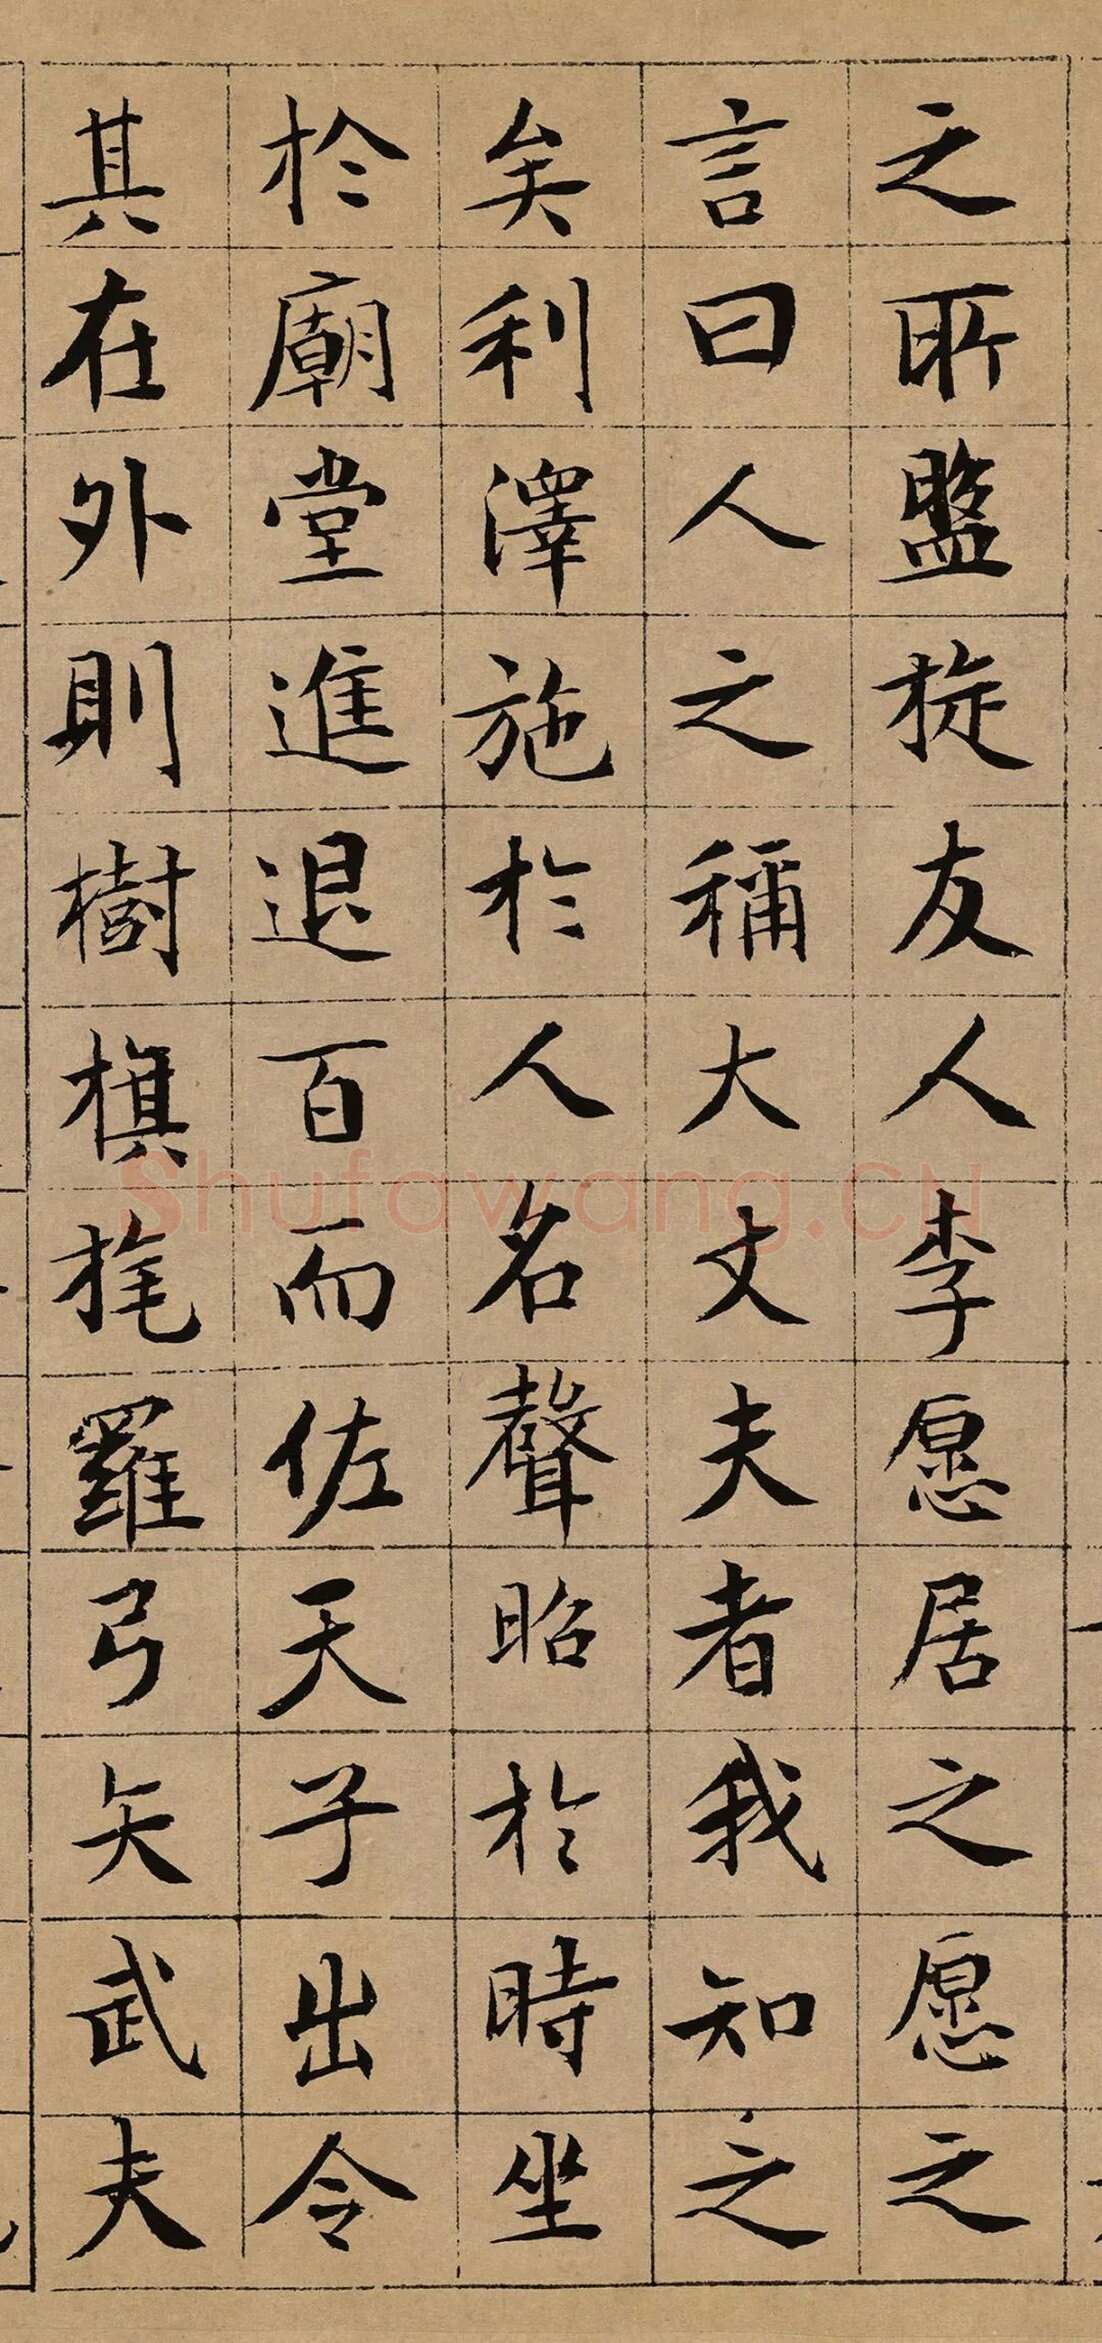 之所盤旋友人李愿居之愿之
言曰人之稱大丈夫者我知之
矣利澤施於人名聲昭於時坐
於廟堂進退百而佐天子出令
其在外則樹旗旄羅弓矢武夫
Shufawang.CN